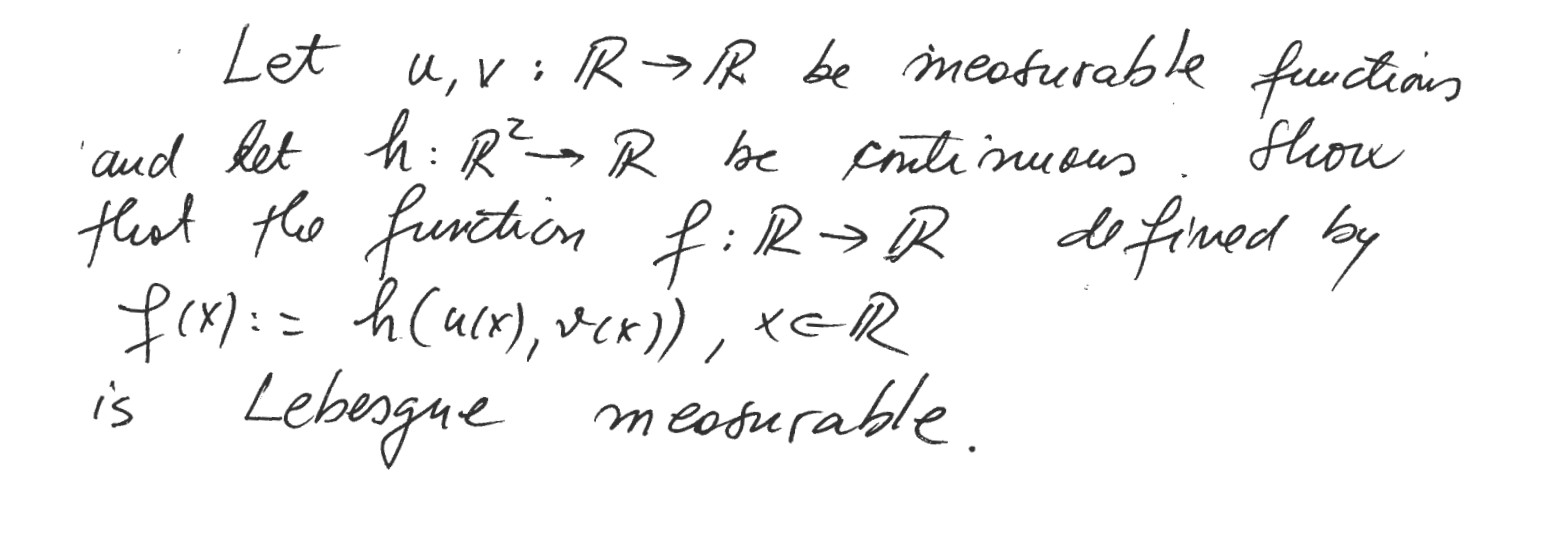 Let u, v : ℝ → ℝ be measurable functions
and let h : ℝ² → ℝ be continuous. Show
that the function f : ℝ → ℝ defined by
f(x) := h(u(x), v(x)), x ∈ ℝ
is Lebesgue measurable.